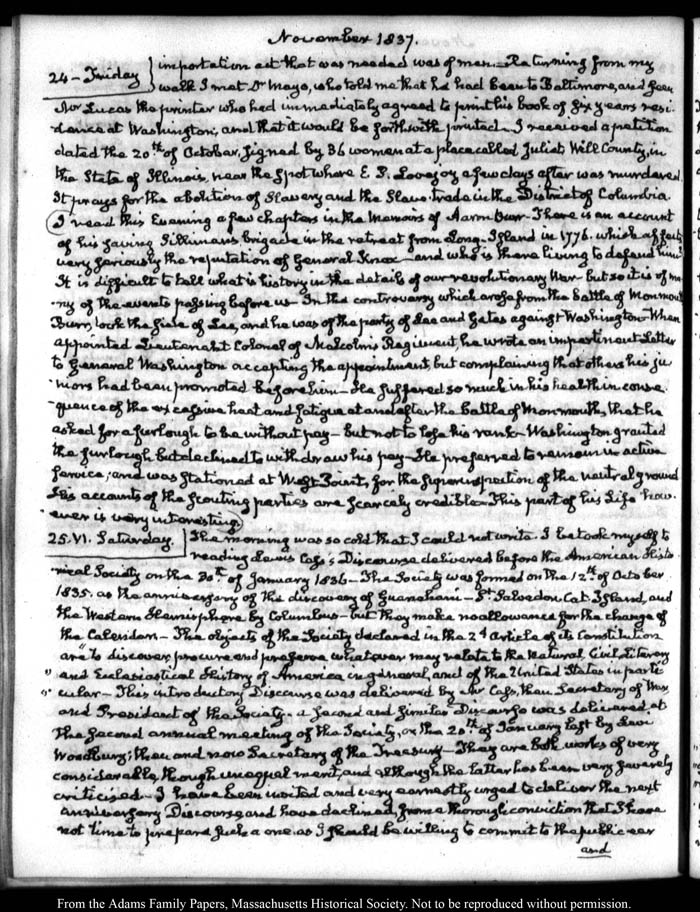 November 1837.
24 – Friday } importation act that was needed was of men – Returning from my
walk I met Dr Mayo, who told me that he had been to Baltimore, and seen
Mr Lucas the printer who had immediately agreed to print his book of six years resi-
dence at Washington, and that it would be forthwith printed – I received a petition
dated the 20th of October, signed by 36 women at a place called Juliet, Will County, in
the State of Illinois, near the spot where E. P. Lovejoy a few days after was murdered
It prays for the abolition of Slavery and the Slave-trade in the District of Columbia.
(I read this Evening a few chapters in the Memoirs of Aaron Burr – There is an account
of his saving Silliman's brigade in the retreat from Long-Island in 1776. which affects
very seriously the reputation of General Knox – and who is there living to defend him?
It is difficult to tell what is history in the details of our revolutionary War – but so it is of ma-
ny of the events passing before us – In the controversy which arose from the battle of Monmouth
Burr, took the side of Lee, and he was of the party of Lee and Gates against Washington – When
appointed Lieutenant Colonel of Malcolm's Regiment, he wrote an impertinent Letter
to General Washington accepting the appointment, but complaining that others his ju-
niors had been promoted before him – He suffered so much in his health in conse-
quence of the excessive heat and fatigue at and after the battle of Monmouth, that he
asked for a furlough to be without pay – but not to lose his rank – Washington granted
the furlough but declined to withdraw his pay – He preferred to remain in active
service, and was stationed at West Point, for the superinspection of the neutral ground
His accounts of the scouting parties are scarcely credible – This part of his Life how-
ever is very interesting)
25. VI. Saturday. } The morning was so cold that I could not write. I betook myself to
reading Lewis Cass's Discourse delivered before the American Histo-
rical Society on the 30th of January 1836 – The Society was formed on the 12th of October
1835. as the anniversary of the discovery of Guanahani – St Salvador, Cat Island, and
the Western Hemisphere by Columbus – but they make no allowance for the change of
the Calendar – The objects of the Society declared in the 2d Article of its Constitution
are "to discover, procure and preserve whatever may relate to the Natural, Civil, Literary
" and Ecclesiastical History of America in general, and of the United States in parti-
" cular – This introductory Discourse was delivered by Mr Cass, then Secretary of War
and President of the Society – a second and similar Discourse was delivered at
the second annual meeting of the Society, on the 20th of January last by Levi
Woodbury; then and now Secretary of the Treasury – They are both works of very
considerable, though unequal merit, and although the latter has been very severely
criticised – I have been invited and very earnestly urged to deliver the next
anniversary Discourse, and have declined, from a thorough conviction that I have
not time to prepare such a one as I should be willing to commit to the public ear
and
From the Adams Family Papers, Massachusetts Historical Society. Not to be reproduced without permission.